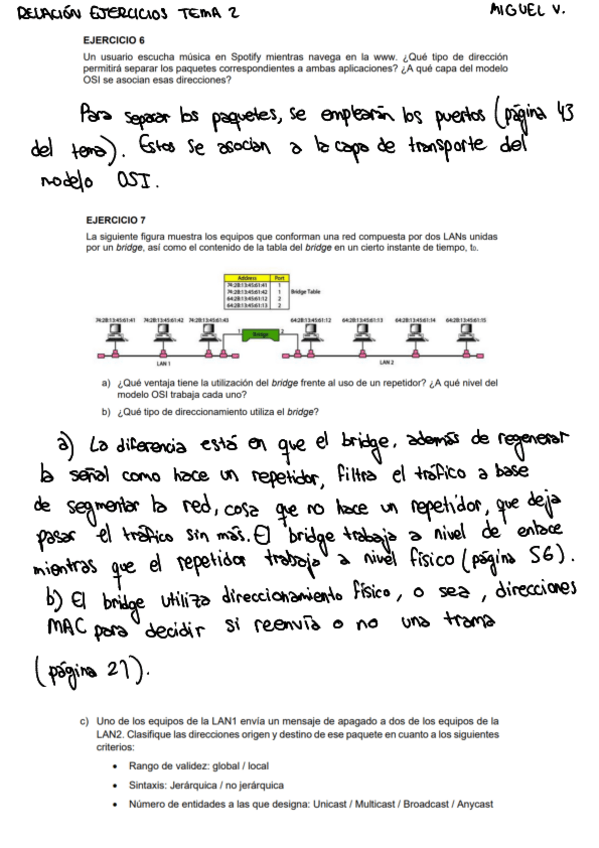 RELACIÓN EJERCICIOS TEMA 2
MIGUEL V.
EJERCICIO 6
Un usuario escucha música en Spotify mientras navega en la www. ¿Qué tipo de dirección
permitirá separar los paquetes correspondientes a ambas aplicaciones? ¿A qué capa del modelo
OSI se asocian esas direcciones?
Para separar los paquetes, se emplearán los puertos (página 43
del tema). Estos se asocian a la capa de transporte del
modelo OSI.
EJERCICIO 7
La siguiente figura muestra los equipos que conforman una red compuesta por dos LANs unidas
por un bridge, así como el contenido de la tabla del bridge en un cierto instante de tiempo, t₀.
Address Port
74:2B:13:45:61:41 1
74:2B:13:45:61:42 1 Bridge Table
64:2B:13:45:61:12 2
64:2B:13:45:61:13 2
74:2B:13:45:61:41 74:2B:13:45:61:42 74:2B:13:45:61:43 64:2B:13:45:61:12 64:2B:13:45:61:13 64:2B:13:45:61:14 64:2B:13:45:61:15
1 Bridge 2
LAN 1 LAN 2
a) ¿Qué ventaja tiene la utilización del bridge frente al uso de un repetidor? ¿A qué nivel del
modelo OSI trabaja cada uno?
b) ¿Qué tipo de direccionamiento utiliza el bridge?
a) La diferencia está en que el bridge, además de regenerar
la señal como hace un repetidor, filtra el tráfico a base
de segmentar la red, cosa que no hace un repetidor, que deja
pasar el tráfico sin más. El bridge trabaja a nivel de enlace
mientras que el repetidor trabaja a nivel físico (página 56).
b) El bridge utiliza direccionamiento físico, o sea, direcciones
MAC para decidir si reenvía o no una trama
(página 21).
c) Uno de los equipos de la LAN1 envía un mensaje de apagado a dos de los equipos de la
LAN2. Clasifique las direcciones origen y destino de ese paquete en cuanto a los siguientes
criterios:
• Rango de validez: global / local
• Sintaxis: Jerárquica / no jerárquica
• Número de entidades a las que designa: Unicast / Multicast / Broadcast / Anycast